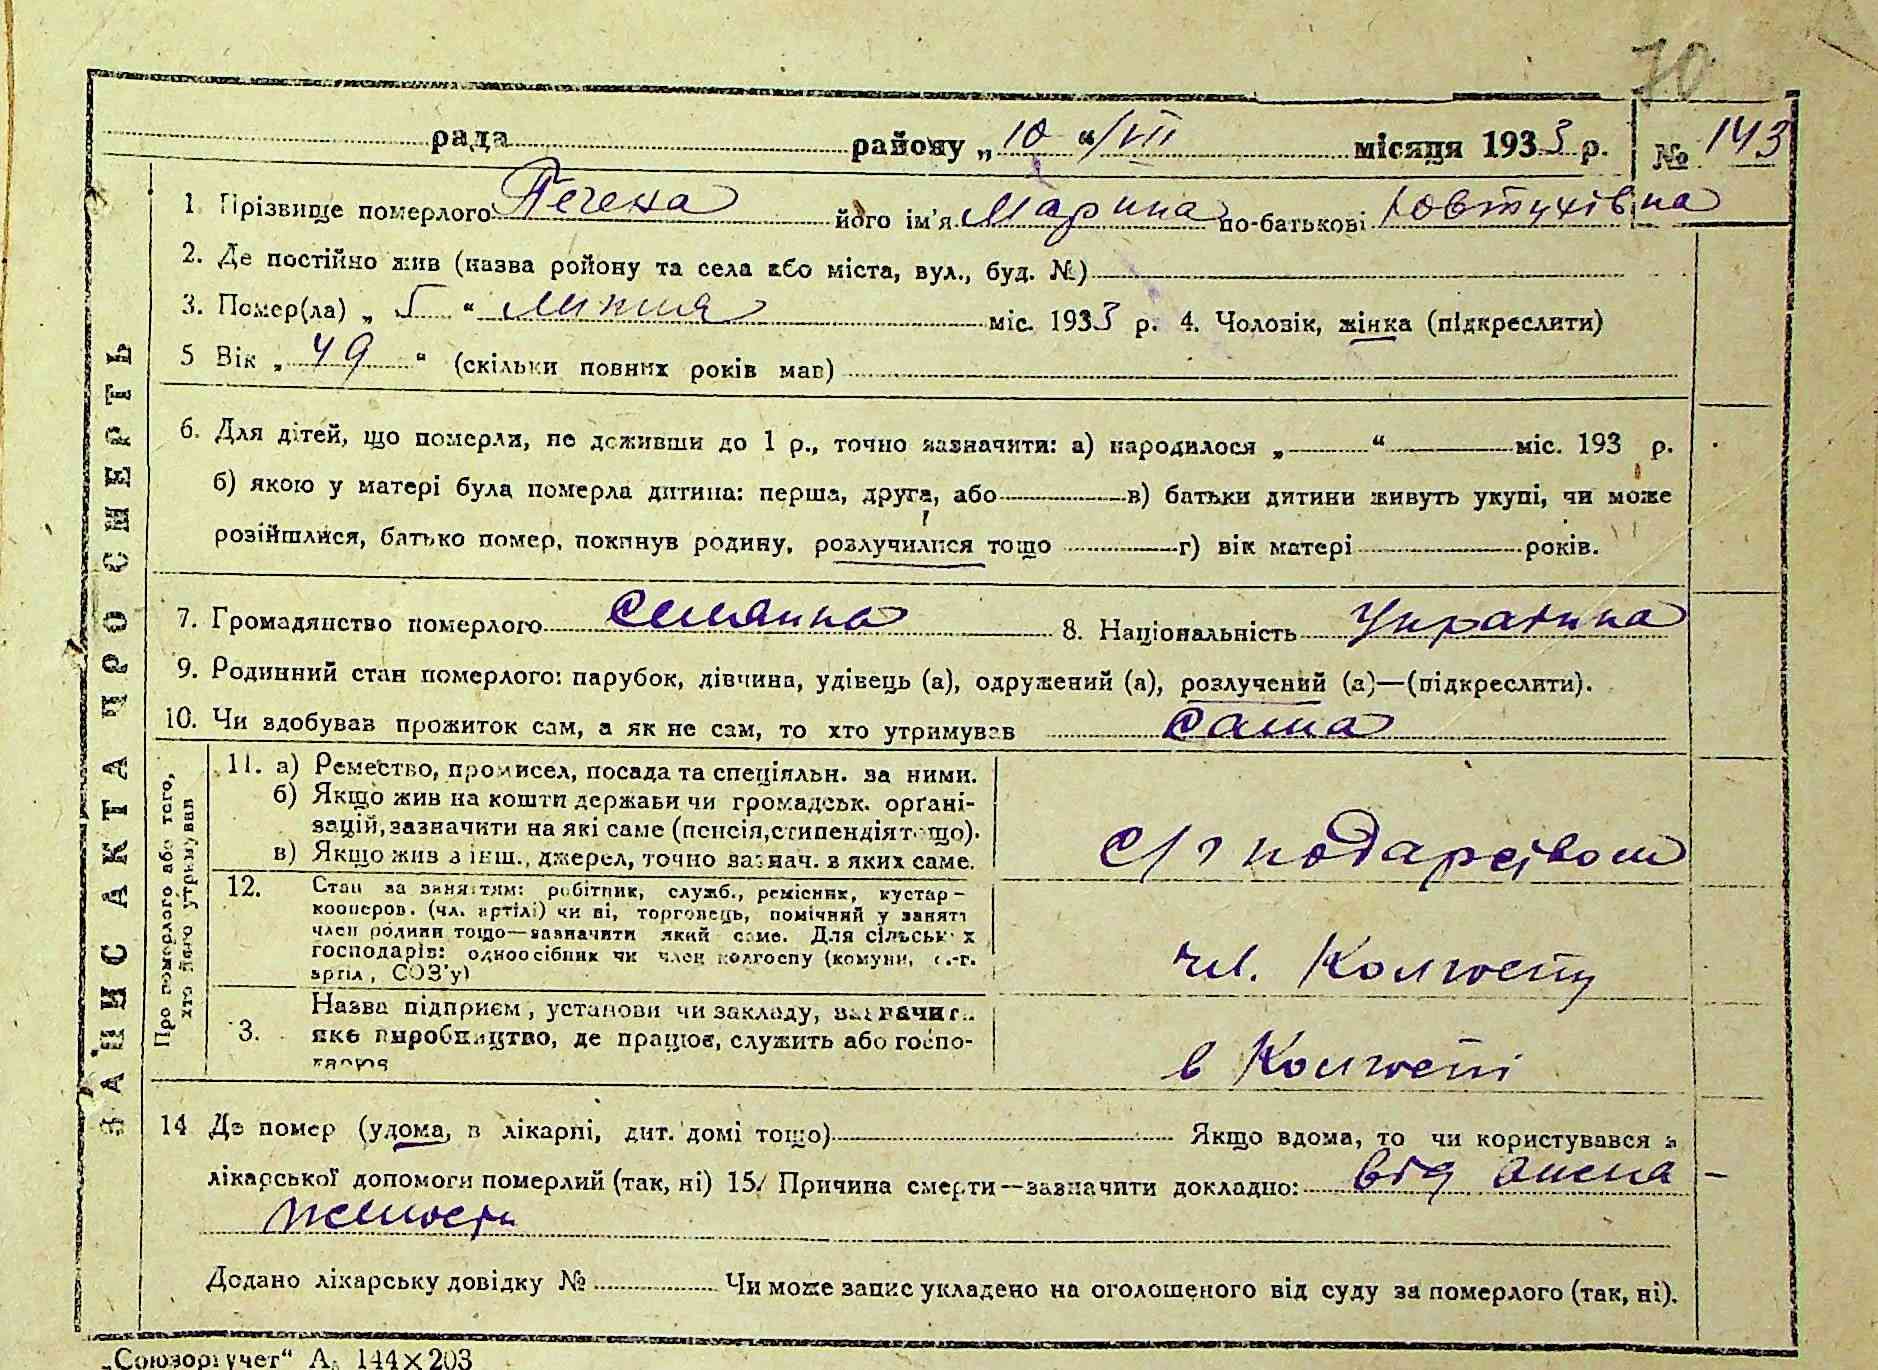 70
рада районy „10“/VII місяця 1933 р. № 143
1. Прізвище померлого Печена його ім'я Марина по-батькові Ювтухівна
2. Де постійно жив (назва ройону та села або міста, вул., буд. №)
3. Помер(ла) „5“ Липня міс. 1933 р. 4. Чоловік, жінка (підкреслити)
5 Вік „49“ (скільки повних років мав)
6. Для дітей, що померли, не доживши до 1 р., точно зазначити: а) народилося „ “ міс. 193 р.
б) якою у матері була померла дитина: перша, друга, або в) батьки дитини живуть укупі, чи може
розійшлися, батько помер, покинув родину, розлучилися тощо г) вік матері років.
7. Громадянство померлого Селянка 8. Національність Украінка
9. Родинний стан померлого: парубок, дівчина, удівець (а), одружений (а), розлучений (а)—(підкреслити).
10. Чи здобував прожиток сам, а як не сам, то хто утримував сама
ЗАПИС АКТА ПРО СМЕРТЬ
Про померлого або того,
хто його утримував
11. а) Ремество, промисел, посада та спеціяльн. за ними.
б) Якщо жив на кошти держави чи громадськ. орґані-
зацій, зазначити на які саме (пенсія, стипендія тощо).
в) Якщо жив з інш., джерел, точно зазнач. з яких саме.
с/г подарсівом
12. Стан за заняттям: робітник, служб., ремісник, кустар-
кооперов. (чл. артілі) чи ні, торговець, помічний у занятт
член родини тощо—зазначити який саме. Для сільськ х
господарів: одноосібник чи член колгоспу (комуни, с.-г.
артіл, СОЗ'у)
чл. Колгоспу
3. Назва підприєм, установи чи закладу, зазначит
яке виробництво, де працює, служить або госпо-
в Колгоспі
14 Де помер (удома, в лікарні, дит. домі тощо) Якщо вдома, то чи користувався з
лікарської допомоги померлий (так, ні) 15. Причина смерти—зазначити докладно: від
Додано лікарську довідку № Чи може запис укладено на оголошеного від суду за померлого (так, ні).
„Союзоргучет“ А. 144×203